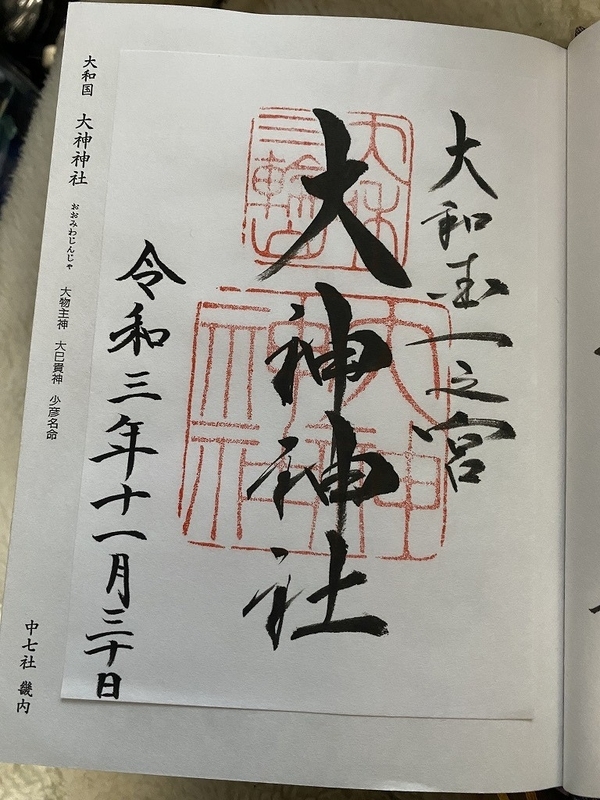 大和国一之宮
大神神社
令和三年十一月三十日
大和
三輪山
大神
神社
大和国 大神神社 おおみわじんじゃ 大物主神 大己貴神 少彦名命
中七社 畿内